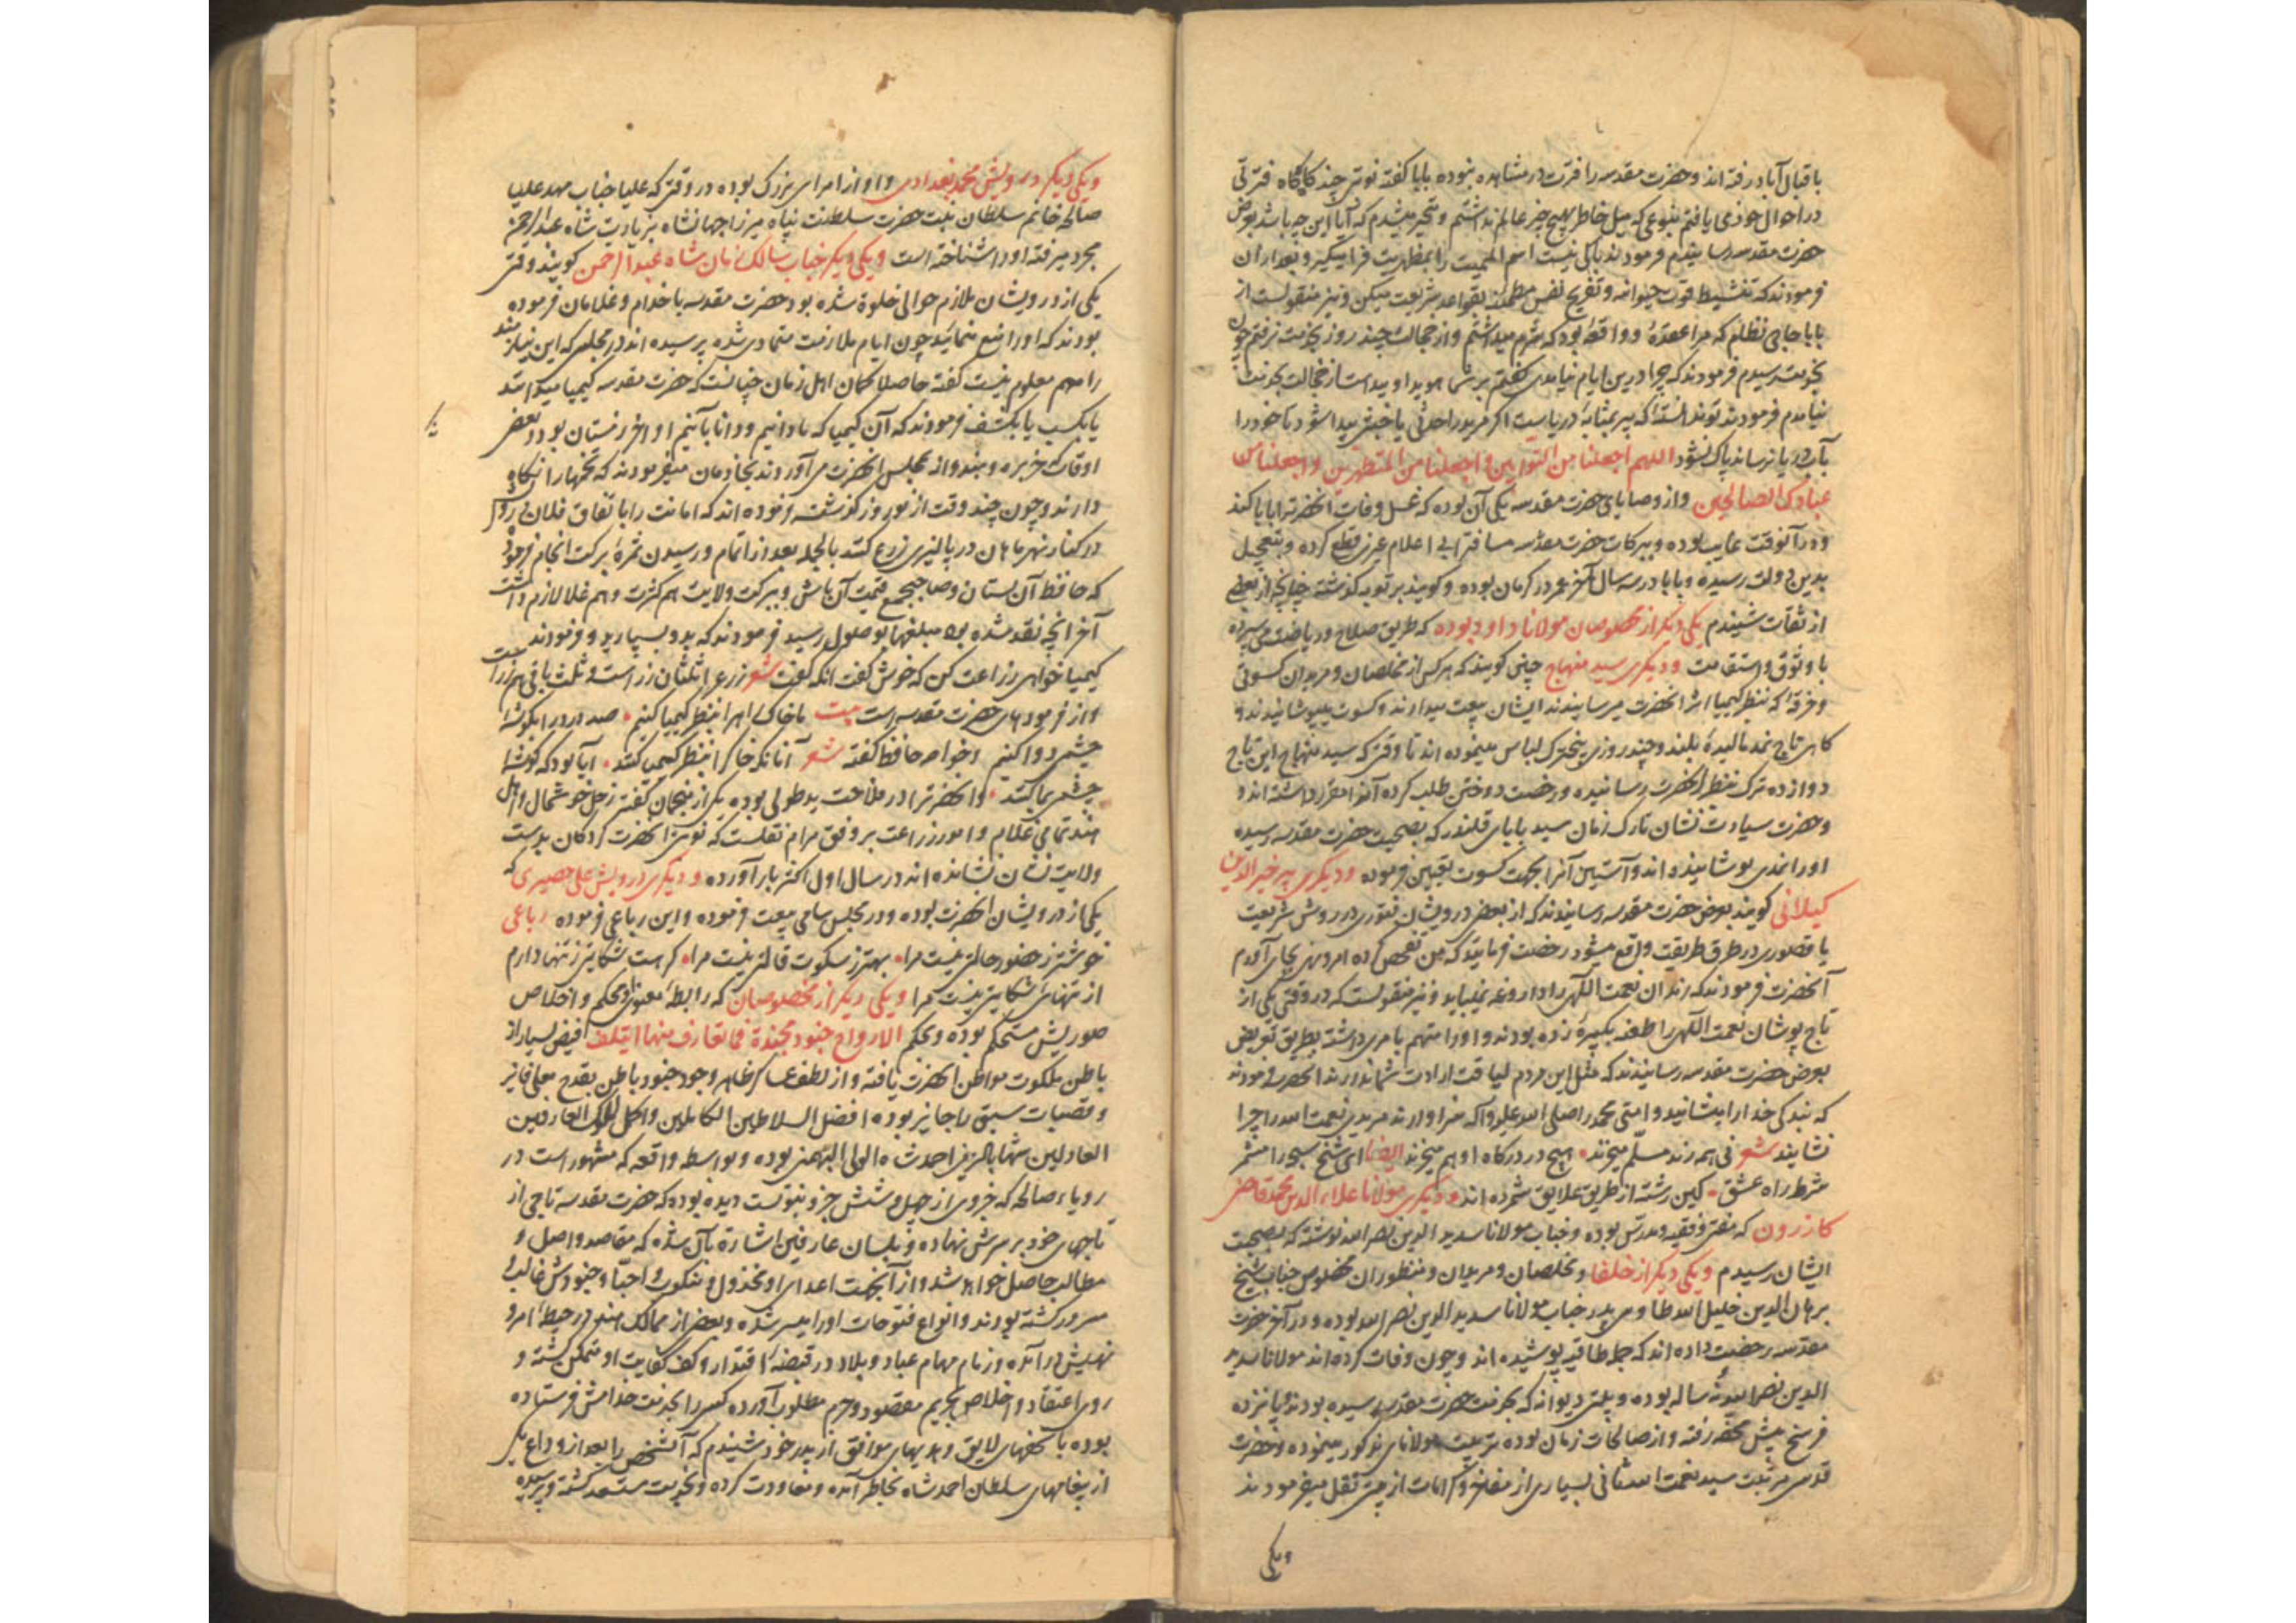 باقبال آباد رفته اند و حضرت مقدسه را فرت در مشاهده نبوده بابا کفته نوبتی چند کاه کاه فترتی
در احوال خود می یافتم بنوعی که میل خاطر بهیچ چیز عالم نداشتم و متحیر میشدم که آیا این چه باشد بعرض
حضرت مقدسه رسانیدم فرمودند باکی نیست اسم الممیت را بمظهریت فرا میگیر و بعد از آن
فرمودند که تنشیط قوت حیوانیه و تفریح نفس مطمئنه بقواعد شریعت میکن و نیز منقولست از
بابا حاجی نظام که مرا عقدهٔ و واقعهٔ بود که شرم میداشتم و از خجالت چند روز بخدمت نرفتم چون
بخدمت رسیدم فرمودند که چرا درین ایام نیامدی کفتم بر شما هویدا و پیداست از خجالت بخدمت
نیامدم فرمودند تو ندانستهٔ که پیر بمثابهٔ دریاست اکر مرید را حدثی یا خبثی پیدا شود تا خود را
بآب دریا نرساند پاک نشود اللهم اجعلنا من التوابین و اجعلنا من المتطهرین و اجعلنا من
عبادک الصالحین و از وصایای حضرت مقدسه یکی آن بوده که غسل وفات آنحضرت را بابا کند
و در آنوقت غایب بوده و ببرکات حضرت مقدسه مسافتر ابی اعلام غیری قطع کرده و بتعجیل
بدین دولت رسیده و بابا در سه سال آخر عمر در کرمان بوده و کویند بر توبه کذشته چنانچه از بعضی
از ثقات شنیدم یکی دیکر از مخصوصان مولانا داود بوده که طریق صلاح و ریاضت می سپرده
با وثوق و استقامت و دیکری سید منهاج چنین کویند که هر کس از مخلصان و مریدان کسوتی
و خرقهٔ که بنظر کیمیا اثر آنحضرت میرسانیدند ایشان بیعت میدادند و کسوت میپوشانیدند و
کاهی تاج نمد مالیدهٔ بلند و چند روزی پنج ترک لباس مینموده اند تا وقتی که سید منهاج این تاج
دوازده ترک بنظر آنحضرت رسانیده و رخصت دوختن طلب کرده آنرا مقرر داشته اند و
و حضرت سیادت نشان تارک زمان سید بابای قلندر که بصحبت حضرت مقدسه رسیده
او را نمدی پوشانیده اند و آستین آنرا بجهت کسوت تعیین فرموده و دیکری پیر خیرالدین
کیلانی کویند بعرض حضرت مقدسه رسانیدند که از بعض درویشان فتوری در روش شریعت
یا قصوری در طرق طریقت واقع میشود رخصت فرمایند که من تفحص کرده امر و نهی بجای آورم
آنحضرت فرمودند که رندان نعمت اللهی را داروغه نمیباید و نیز منقولست که در وقتی یکی از
تاج پوشان نعمت اللهی را طعنه بکبیرهٔ زده بودند و او را متهم بامری داشته بطریق تعریض
بعرض حضرت مقدسه رسانیدند که مثل این مردم لیاقت ارادت شما ندارند آنحضرت فرمودند
که بندکی خدا را میشانیدو امتی محمد را صلی الله علیه و آله سزاوارند مریدی نعمت الله را چرا
نشایند شعر فی همه رند مسلم میخرند • هیچ در درکاه او هم میخرند ایضا ای شیخ سبحه را مشمر
شرط راه عشق • کین رشته از طریق علایق شمرده اند و دیکری مولانا علاء الدین محمد قاضی
کازرون که مفتی و فقیه و مدرس بوده و جناب مولانا سدید الدین نصر الله نوشته که بصحبت
ایشان رسیدم و یکی دیکر از خلفا و مخلصان و مریدان و منظوران مخصوص جناب شیخ
برهان الدین خلیل الله طاوسی پدر جناب مولانا سدید الدین نصر الله بوده و در آخر حضرت
مقدسه رخصت داده اند که جمل طاقیه پوشیده اند و چون وفات کرده اند مولانا سدید
الدین نصر الله نه ساله بوده و پلتی دیوانه که بخدمت حضرت مقدسه رسیده بودند پانزده
فرسخ پیش محفه رفته و از صالحات زمان بوده تربیت مولانای مذکور مینموده و حضرت
قدسی مرتبت سید نعمت الله ثانی بسیاری از مفاخر و کرامات از جدتی نقل میفرمودند
ویکی
ویکی دیکر درویش محمد بغدادی و او از امرای بزرک بوده در وقتی که علیا جناب مهد علیا
صالحه خانم سلطان بنت حضرت سلطنت پناه میرزا جهانشاه بزیارت شاه عبد الرحمن
مجرد میرفته او را شناخته است ویکی دیکر جناب سالک زمان شاه عبد الرحمن کویند وقتی
یکی از درویشان ملازم حوالی خلوة شده بود حضرت مقدسه با خدام و غلامان فرموده
بودند که او را منع ننمائید چون ایام ملازمت متمادی شده پرسیده اند در مجلس که این نیازمند
را مهم معلوم نیست کفته حاصلا کمان اهل زمان چنانست که حضرت مقدسه کیمیا میدانند
یا بکسب یا بکشف فرمودند که آن کیمیا که ما دانیم و دانا بآنیم اواخر زمستان بود در بعض
اوقات خربزه و هندوانه بمجلس آنحضرت می آوردند بخادمان میفرمودند که تخمها را نکاه
دارند و چون چند وقت از نوروز کذشت فرموده اند که امانت را باتفاق فلان درویش
در کنار نهر ماهان در پالیزی زرع کنند بالجمله بعد از اتمام و رسیدن ثمرهٔ برکت انجام فرمود
که حافظ آن بستان و صاحب جمع قیمت آن باش و ببرکت ولایت هم کثرت و هم غلا لازم داشت
آخر آنچه نقد شده بود مبلغها بوصول رسید فرمودند که بدو بسپارید و فرمودند بیت
کیمیا خواهی زراعت کن که خوش کفت آنکه کفت شعر زرع را ثلثان زر است و ثلث باقی هم زر است
و از فرموده های حضرت مقدسه است بیت ما خاک راه را بنظر کیمیا کنیم • صد درد را بکوشهٔ
چشمی دوا کنیم و خواجه حافظ کفته شعر آنانکه خاک را بنظر کیمیا کنند • آیا بود که کوشهٔ
چشمی بما کنند • و آنحضرت را در فلاحت ید طولی بوده یکی از منجمان کفته زحل خوشحال و اهل
هند تمامی غلام و امور زراعت بر وفق مرام نقلست که نوبتی آنحضرت کردکان بدست
ولایت نشان نشانده اند در سال اول اکثر بار آورده و دیکری درویش علی حصیری که
یکی از درویشان آنحضرت بوده و در مجلس سامی بیعت فرموده و این رباعی فرموده رباعی
خوشتر ز حضور حالتی نیست مرا • بهتر ز سکوت قالتی نیست مرا • کر هست شکایتی ز تنها دارم
از تنهائی شکایتی نیست مرا ویکی دیکر از مخصوصان که رابطهٔ معنوی محکم و اخلاص
صوریش مستحکم بوده و بحکم الارواح جنود مجندة فما تعارف منها ایتلف فیض بسیار از
باطن ملکوت مواطن آنحضرت یافته و از لطف عساکر ظاهر وجود جنود باطن بقدح معلی فایز
و قصبات سبق را حایز بوده افضل السلاطین الکاملین و اکمل الملوک العارفین
العادلین شهاب الدین احمد شاه الولی البهمنی بوده و بواسطه واقعه که مشهور است در
رویاء صالحه که جزوی از چهل و شش جزو نبوتست دیده بوده که حضرت مقدسه تاجی از
تاجهای خود بر سرش نهاده و بلسان عارفین اشارة بآن شده که مقاصد واصل و
مطالب حاصل خواهد شد و از آنجهت اعدای او مخذول و منکوب و احبا و جنودش غالب و
مسرور کشته بودند و انواع فتوحات او را میسر شده و بعضی از ممالک هند در حیطهٔ امر و
نهیش در آمده و زمام مهام عباد و بلاد در قبضهٔ اقتدار و کف کفایت او متمکن کشته و
روی اعتقاد و اخلاص بحریم مقصود و حرم مطلوب آورده کسی را بخدمت خدامش فرستاده
بوده با تحفهای لایق و هدیهای موافق از پدر خود شنیدم که آن شخص را بعد از وداع یکی
از پیغامهای سلطان احمد شاه بخاطر آمده و معاودت کرده و بخدمت مستسعد کشته و پرسیده